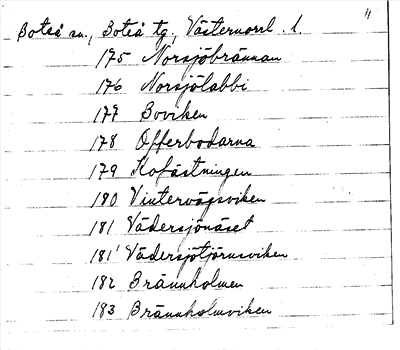 Boteå sn., Boteå tg., Västernorrl. l. 4
175 Norsjöbrännan
176 Norsjölabbi
177 Boviken
178 Offerbodarna
179 Kofästningen
180 Vintervägsviken
181 Vädersjönäset
181' Vädersjötjärnsviken
182 Brännholmen
183 Brännholmviken